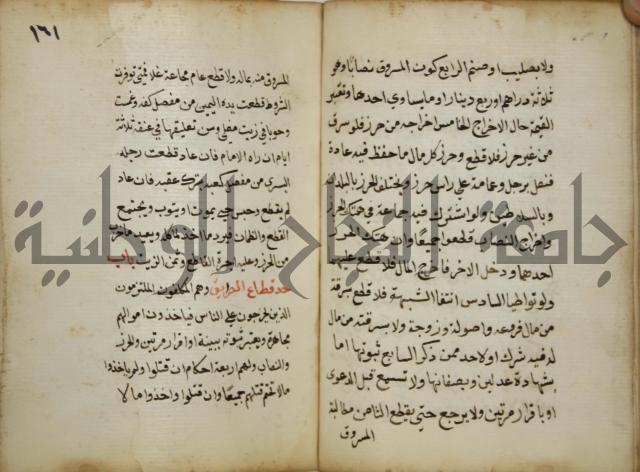 ولا بصليب او صنم الرابع كون المسروق نصابا وهو
ثلاثة دراهم او ربع دينار او ما يساوي احدهما وتعتبر
القيمة حال الاخراج الخامس اخراجه من حرز فلو سرق
من غير حرز فلا قطع وحرز كل مال ما حفظ فيه عادة
فنعل برجل وعمامة على راس حرز ويختلف الحرز بالبلدان
وبالسلاطين ولو اشترك فيه جماعة في هتك الحرز
واخراج النصاب قطعوا جميعا وان هتك الحرز
احدهما ودخل الاخر فاخرج المال فلا قطع عليهما
ولو تواطيا السادس انتفا الشبهة فلا قطع بسرقة
من مال فروعه واصوله وزوجة ولا بسرقته من مال
له فيه شرك او لاحد ممن ذكر السابع ثبوتها اما
بشهادة عدلين ويصفانها ولا تسمع قبل الدعوى
او باقرار مرتين ولا يرجع حتى يقطع الثامن مطالبة
المسروق
١٦١
المسروق منه بماله ولا قطع عام مجاعة غلا فمتى توفرت
الشروط قطعت يده اليمنى من مفصل كفه وغمست
وجوبا في زيت مغلي وسن تعليقها في عنقه ثلاثة
ايام ان راه الامام فان عاد قطعت رجله
اليسرى من مفصل كعبه بترك عقبه فان عاد
لم يقطع وحبس حتى يموت او يتوب ويجتمع
القطع والضمان فيرد ما اخذ لمالكه ويعيد ما خرب
من الحرز وعليه اجرة القاطع وثمن الزيت باب
حد قطاع الطريق وهم المكلفون الملتزمون
الذين يخرجون على الناس فياخذون اموالهم
مجاهرة ويعتبر ثبوته ببينة او اقرار مرتين والحرز
والنصاب ولهم اربعة احكام ان قتلوا ولم ياخذوا
مالا تحتم قتلهم جميعا وان قتلوا واخذوا مالا
جامعة النجاح الوطنية